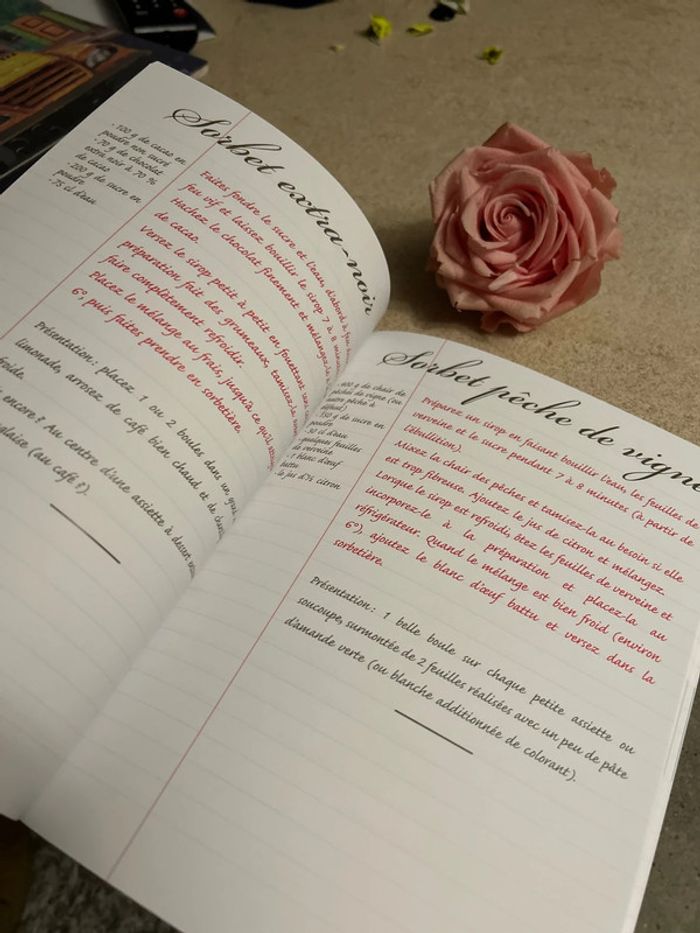 Sorbet extra-noir
- 100 g de cacao en
poudre non sucré
- 70 g de chocolat
extra noir à 70 %
de cacao
- 200 g de sucre en
poudre
- 75 cl d'eau
Faites fondre le sucre et l'eau, d'abord à feu
feu vif et laissez bouillir le sirop 7 à 8 minutes
Hachez le chocolat finement et mélangez-le
de cacao.
Versez le sirop petit à petit en fouettant
préparation fait des grumeaux, tamisez-la
faire complètement refroidir.
Placez le mélange au frais, jusqu'à ce qu'il
6°, puis faites prendre en sorbetière.
Présentation : placez 1 ou 2 boules dans un
limonade, arrosez de café bien chaud, et de
froide.
encore ? Au centre d'une assiette à dessert
glaise (au café !).
Sorbet pêche de vigne
- 400 g de chair de
pêches de vigne (ou
autre pêche à
défaut)
- 350 g de sucre en
poudre
- 30 cl d'eau
- quelques feuilles
de verveine
- 1 blanc d'œuf
battu
- le jus d'½ citron
Préparez un sirop en faisant bouillir l'eau, les feuilles de
verveine et le sucre pendant 7 à 8 minutes (à partir de
l'ébullition).
Mixez la chair des pêches et tamisez-la au besoin si elle
est trop fibreuse. Ajoutez le jus de citron et mélangez.
Lorsque le sirop est refroidi, ôtez les feuilles de verveine et
incorporez-le à la préparation et placez-la au
réfrigérateur. Quand le mélange est bien froid (environ
6°), ajoutez le blanc d'œuf battu et versez dans la
sorbetière.
Présentation : 1 belle boule sur chaque petite assiette ou
soucoupe, surmontée de 2 feuilles réalisées avec un peu de pâte
d'amande verte (ou blanche additionnée de colorant).